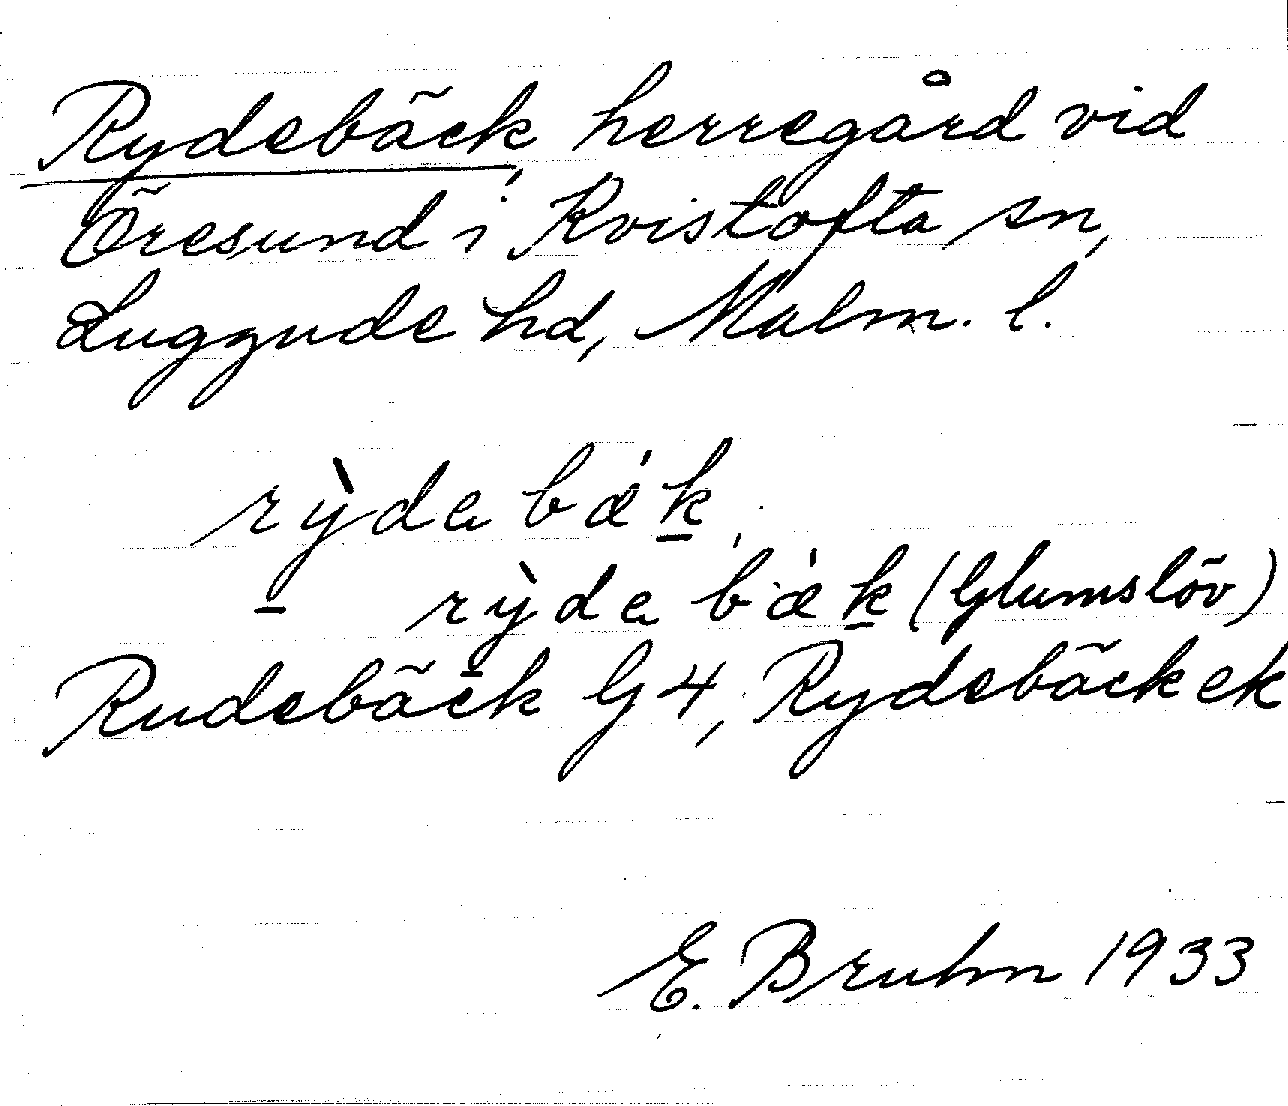 Rydebäck, herregård vid
Öresund i Kvistofta sn,
Luggude hd, Malm. l.
rỳdabǽk,
rỳdabǽk (Glumslöv)
Rudebäck G4, Rydebäck ek
E. Bruhn 1933